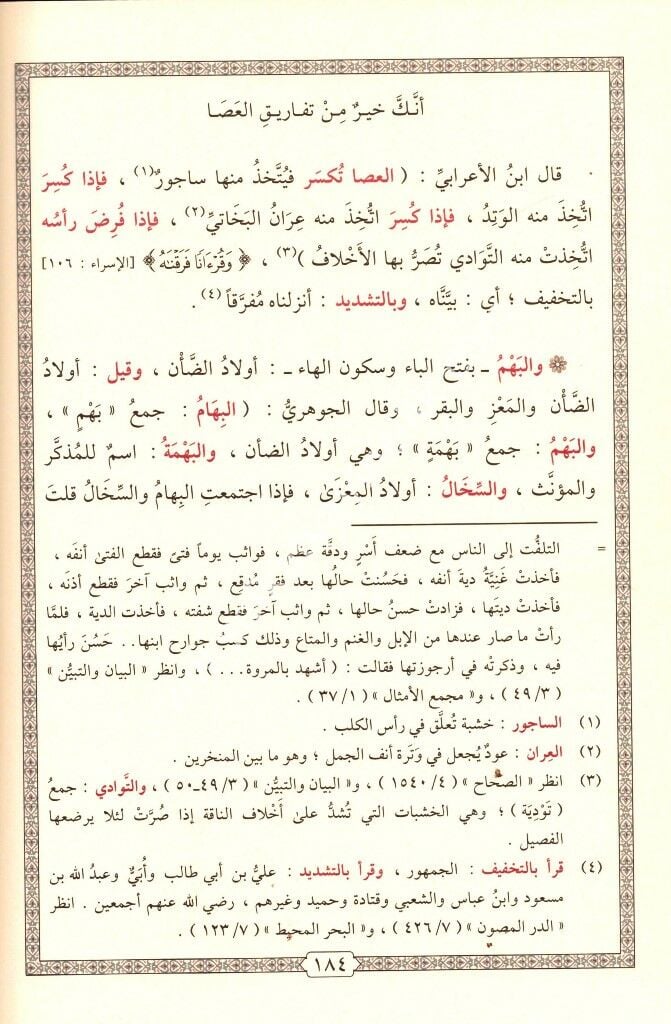 أنَّكَ خيرٌ مِنْ تفاريقِ العَصَا
قال ابنُ الأعرابيِّ : ( العصا تُكسَر فيُتَّخذُ منها ساجورٌ(١) ، فإذا كُسِرَ
اتُّخِذَ منه الوَتِدُ ، فإذا كُسِرَ اتُّخِذَ منه عِرَانُ البَخَاتيِّ(٢) ، فإذا فُرِضَ رأسُه
اتُّخِذتْ منه التَّوَادي تُصَرُّ بها الأَخْلافُ )(٣) ، ﴿ وَقُرْءَانًا فَرَقْنَٰهُ ﴾ [الإسراء : ١٠٦]
بالتخفيف ؛ أي : بيَّنَّاه ، وبالتشديد : أنزلناه مُفرَّقاً(٤) .
والبَهْمُ ـ بفتح الباء وسكون الهاء ـ : أولادُ الضَّأْن ، وقيل : أولادُ
الضَّأن والمَعْزِ والبقر ، وقال الجوهريُّ : ( البِهامُ : جمعُ « بَهْمٍ » ،
والبَهْمُ : جمعُ « بَهْمَةٍ » ؛ وهي أولادُ الضأن ، والبَهْمَةُ : اسمٌ للمُذكَّر
والمؤنَّث ، والسِّخَالُ : أولادُ المِعْزَىٰ ، فإذا اجتمعتِ البِهامُ والسِّخَالُ قلتَ
= التلفُّت إلى الناس مع ضعف أَسْرٍ ودقَّة عظم ، فواثب يوماً فتىً فقطع الفتىٰ أنفَه ،
فأخذتْ غَنِيَّةُ ديةَ أنفه ، فحَسُنتْ حالُها بعد فقرٍ مُدقِع ، ثم واثب آخرَ فقطع أذنَه ،
فأخذتْ ديتَها ، فزادتْ حسنُ حالها ، ثم واثب آخرَ فقطع شفته ، فأخذت الدية ، فلمَّا
رأتْ ما صار عندها من الإبل والغنم والمتاع وذلك كسبُ جوارح ابنها.. حَسُنَ رأيُها
فيه ، وذكرتْه في أرجوزتها فقالت : ( أشهد بالمروة... ) ، وانظر « البيان والتبيُّن »
( ٤٩/٣ ) ، و« مجمع الأمثال » ( ٣٧/١ ) .
(١) الساجور : خشبة تُعلَّق في رأس الكلب .
(٢) العِران : عودٌ يُجعل في وَتَرة أنف الجمل ؛ وهو ما بين المنخرين .
(٣) انظر « الصحاح » ( ١٥٤٠/٤ ) ، و« البيان والتبيُّن » ( ٤٩/٣ـ٥٠ ) ، والتَّوادي : جمعُ
( تَوْدِيَة ) ؛ وهي الخشبات التي تُشدُّ علىٰ أَخْلاف الناقة إذا صُرَّتْ لئلا يرضعها
الفصيل .
(٤) قرأ بالتخفيف : الجمهور ، وقرأ بالتشديد : عليُّ بن أبي طالب وأُبَيٌّ وعبدُ الله بن
مسعود وابنُ عباس والشعبي وقتادة وحميد وغيرهم ، رضي الله عنهم أجمعين . انظر
« الدر المصون » ( ٤٢٦/٧ ) ، و« البحر المحيط » ( ١٢٣/٧ ) .
١٨٤